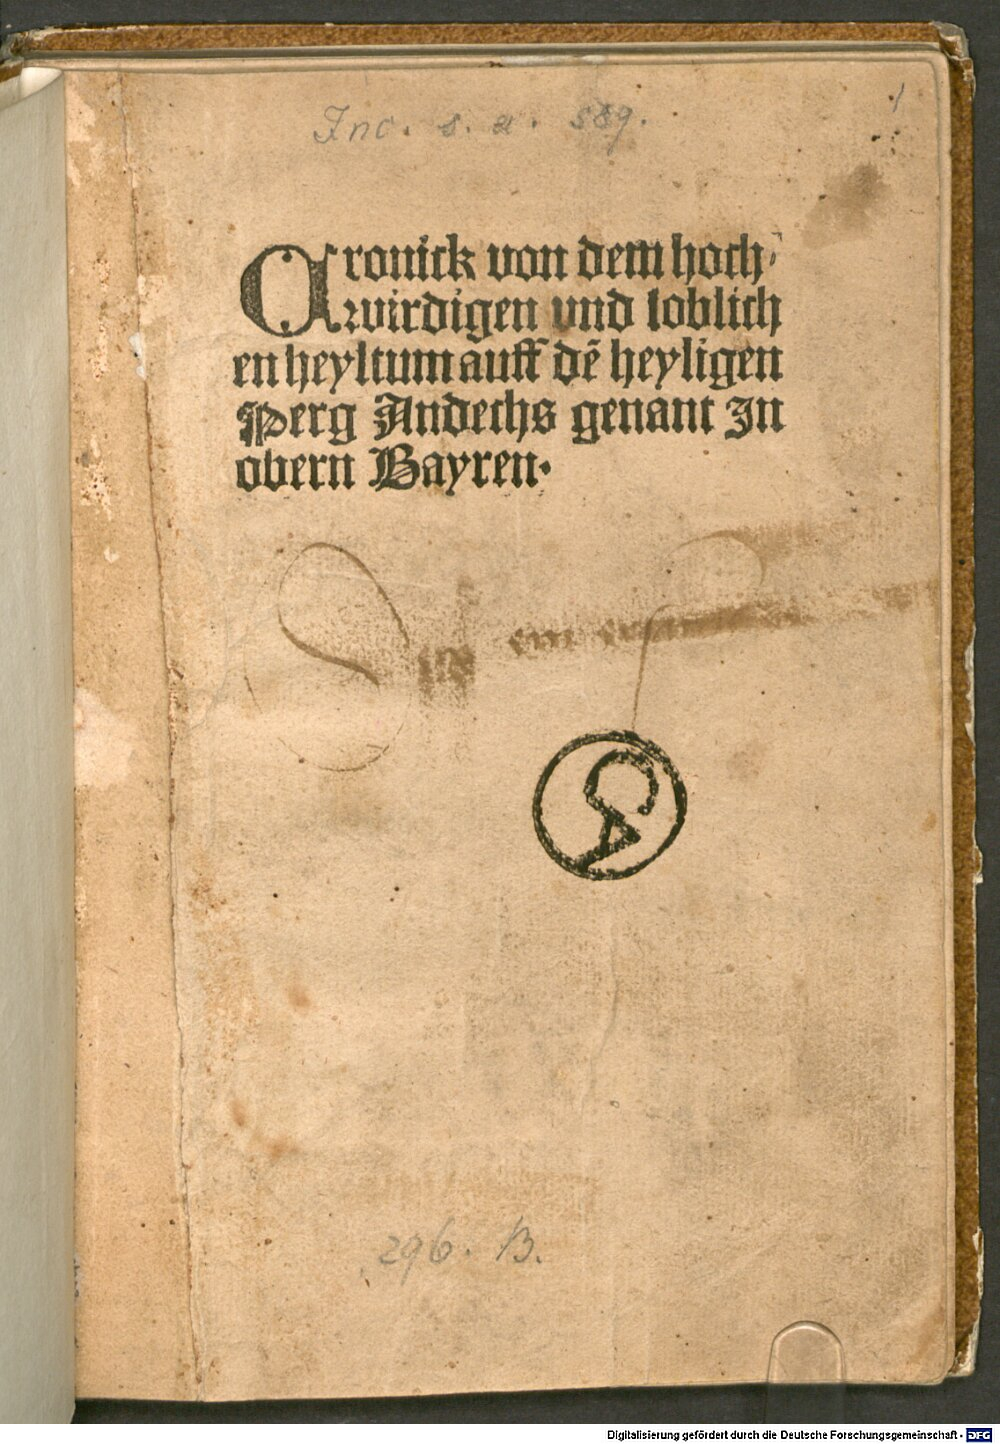 Inc. s. a. 589.
1
Cronick von dem hoch⸗
wirdigen vnd loblich
en heyltum auff dē heyligen
Perg Andechs genant In
obern Bayren.
296. B.
Digitalisierung gefördert durch die Deutsche Forschungsgemeinschaft - DFG